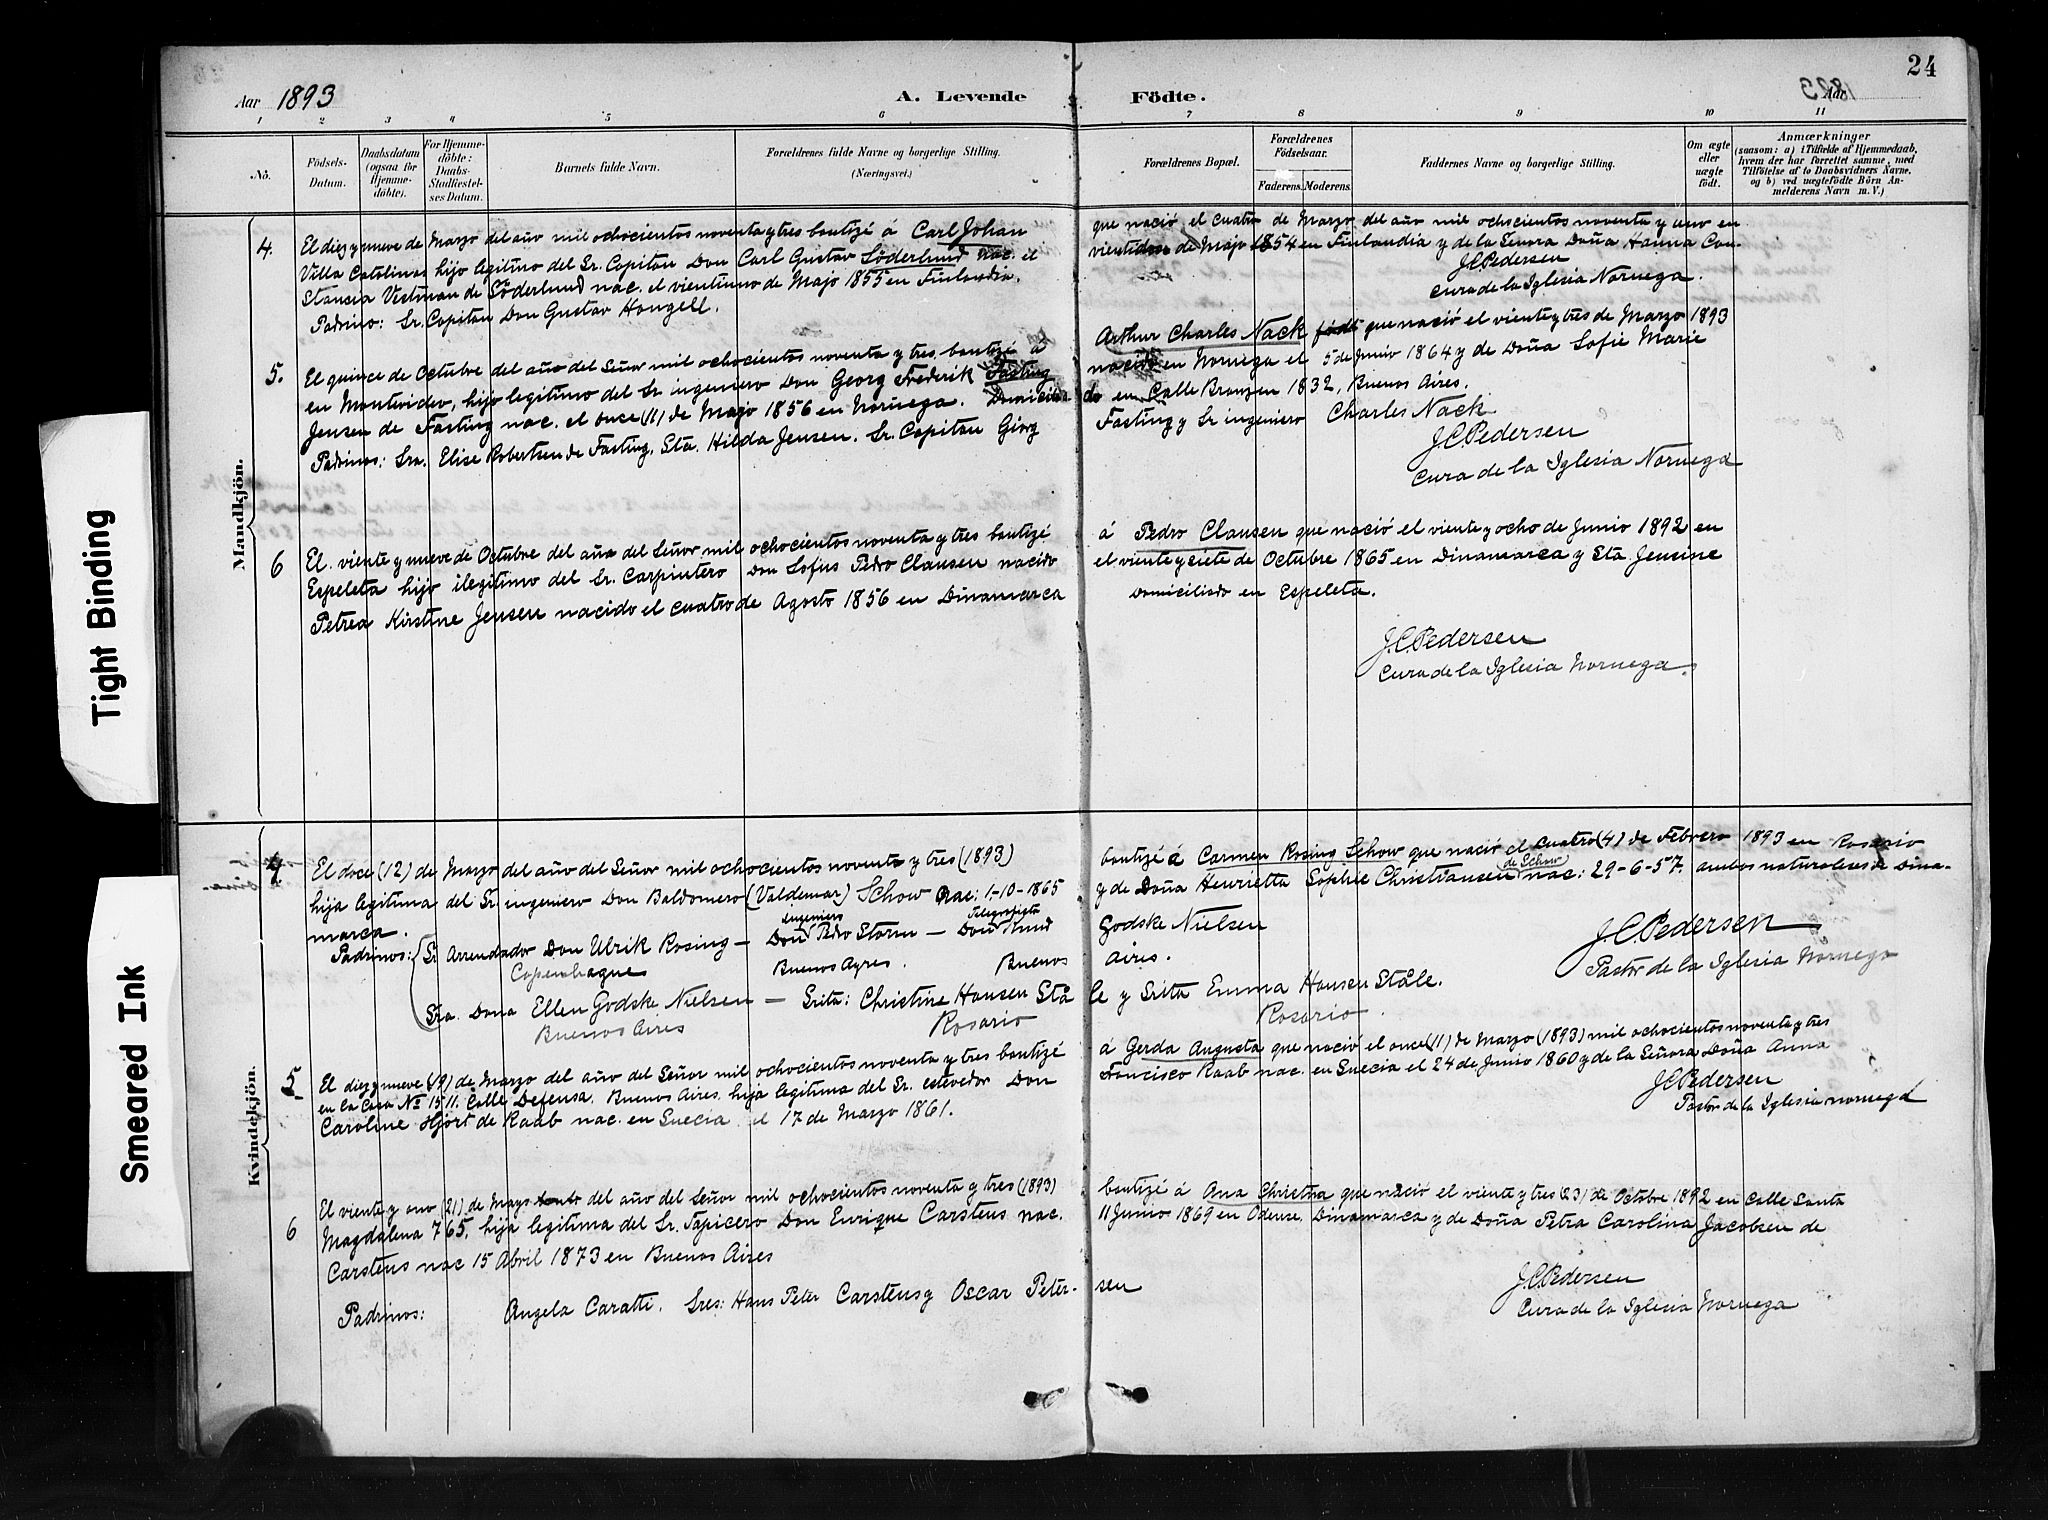 Aar 1893
A. Levende
Födte.
Aar 1893
24
1 2 3 4 5 6 7 8 9 10 11
No.
Födsels-
Datum.
Daabsdatum
(ogsaa for
Hjemme-
döbte).
For Hjemme-
döbte:
Daabs-
Stadfæstel-
ses Datum.
Barnets fulde Navn.
Forældrenes fulde Navne og borgerlige Stilling.
(Næringsvei.)
Forældrenes Bopæl.
Forældrenes
Födselsaar.
Faderens. Moderens.
Faddernes Navne og borgerlige Stilling.
Om ægte
eller
uægte
födt.
Anmærkninger
(saasom: a) i Tilfælde af Hjemmedaab,
hvem der har forrettet samme, med
Tilföielse af to Daabsvidners Navne,
og b) ved uægtefödte Börn An-
melderens Navn m. V.)
Mandkjön.
4. El diez y nueve de Marzo del año mil ochocientos noventa y tres bautizé á Carl Johan que nació el cuatro de Marzo del año mil ochocientos noventa y uno en
Villa Catalinas hijo legitimo del Sr. Capitan Don Carl Gustav Söderlund nac. el vientidos de Majo 1854 en Finlandia y de la Senora Doña Hanna Con-
stansia Vestman de Söderlund nac. el vientiuno de Majo 1855 en Finlandia.
Padrino: Sr. Capitan Don Gustav Hongell.
J.C. Pedersen
Cura de la Iglesia Noruega.
5. El quince de Octubre del año del Señor mil ochocientos noventa y tres bautizé á Arthur Charles Nack födt que nació el viente y tres de Marzo 1893
en Montevideo, hijo legitimo del Sr ingeniero Don Georg Frederik Fasting nacido en Noruega el 5 de Junio 1864 y de Doña Sofie Marie
Jensen de Fasting nac. el once (11) de Majo 1856 en Noruega. Domicilido en Calle Branzen 1832, Buenos Aires.
Padrinos: Sra. Elise Robertsen de Fasting, Sta. Hilda Jensen. Sr. Capitan Giörg Fasting y Sr ingeniero Charles Nack
J.C. Pedersen
Cura de la Iglesia Noruega
6 El viente y nueve de Octubre del año del Señor mil ochocientos noventa y tres bautizé á Pedro Clausen que nació el viente y ocho de Junio 1892 en
Espeleta hijo ilegitimo del Sr. Carpintero Don Sofus Pedro Clausen nacido el viente y siete de Octubre 1865 en Dinamarca y Sta Jensine
Petrea Kirstine Jensen nacido el cuatro de Agosto 1856 en Dinamarca domiciliado en Espeleta.
J.C. Pedersen
Cura de la Iglesia Noruega.
Kvindekjön.
4. El doce (12) de Marzo del año del Señor mil ochocientos noventa y tres (1893) bautizé á Carmen Rosing Schow que nació el cuatro (4) de Febrero 1893 en Rosario
hija legitima del Sr. ingeniero Don Baldomero (Valdemar) Schow nac: 1-10-1865 y de Doña Henrietta Sophie Christiansen de Schow nac: 29-6-57. ambos naturales de Dina-
marca.
Padrinos: Sr Arrendador Don Ulrik Rosing — ingeniero Don Pedro Storm — Telegrafista Don Knud Godske Nielsen
Copenhague Buenos Ayres. Buenos Aires.
Sra. Dona Ellen Godske Nielsen — Srita: Christine Hansen Ståle y Sritta Emma Hansen Ståle.
Buenos Aires Rosario Rosario.
J.C. Pedersen
Pastor de la Iglesia Noruega
5 El diez y nueve (19) de Marzo del año del Señor mil ochocientos noventa y tres bautizé á Gerda Augusta que nació el once (11) de Marzo (1893) mil ochocientos noventa y tres
en la Casa No 1511. Calle Defensa. Buenos Aires. hija legitima del Sr. estevedor Don Francisco Raab nac. en Suecia el 24 de Junio 1860 y de la Señora Doña Anna
Caroline Hjort de Raab nac. en Suecia el 17 de Marzo 1861.
J.C. Pedersen
Pastor de la Iglesia noruega
6 El viente y uno (21) de Mayo del año del Señor mil ochocientos noventa y tres (1893) bautizé á Ana Christina que nació el viente y tres (23) de Octobre 1892 en Calle Santa
Magdalena 765, hija legitima del Sr. Tapicero Don Enrique Carstens nac. 11 Junio 1869 en Odense, Dinamarca y de Doña Petra Carolina Jacobsen de
Carstens nac 15 Abril 1873 en Buenos Aires
Padrinos: Angela Caratti. Sres: Hans Peter Carstens y Oscar Peter-sen
J.C. Pedersen
Cura de la Iglesia Noruega
Tight Binding
Smeared Ink